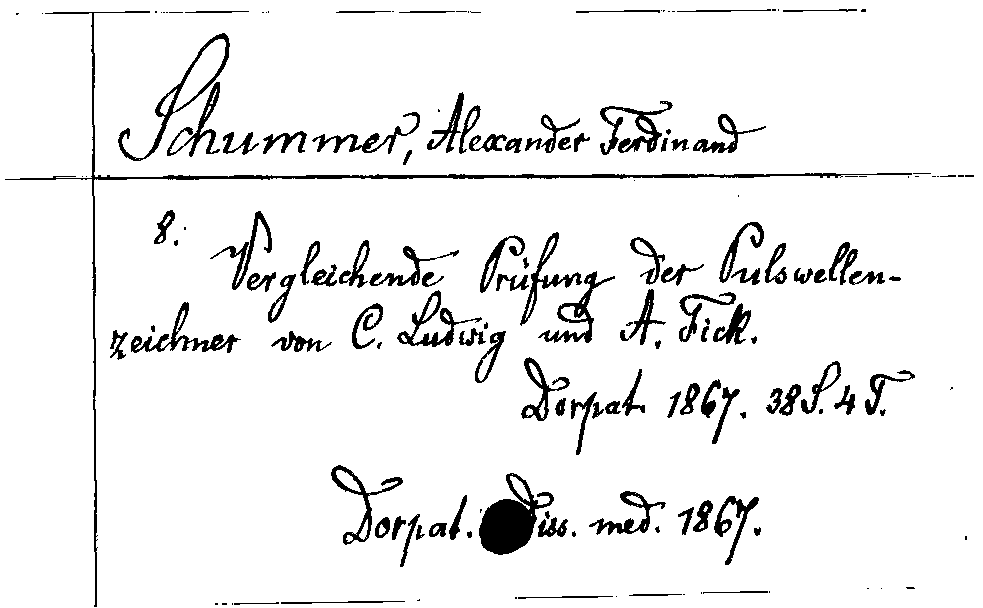 Schummer, Alexander Ferdinand
8.
Vergleichende Prüfung der Pulswellen-
zeichner von C. Ludwig und A. Fick.
Dorpat. 1867. 38 S. 4 T.
Dorpat. Diss. med. 1867.